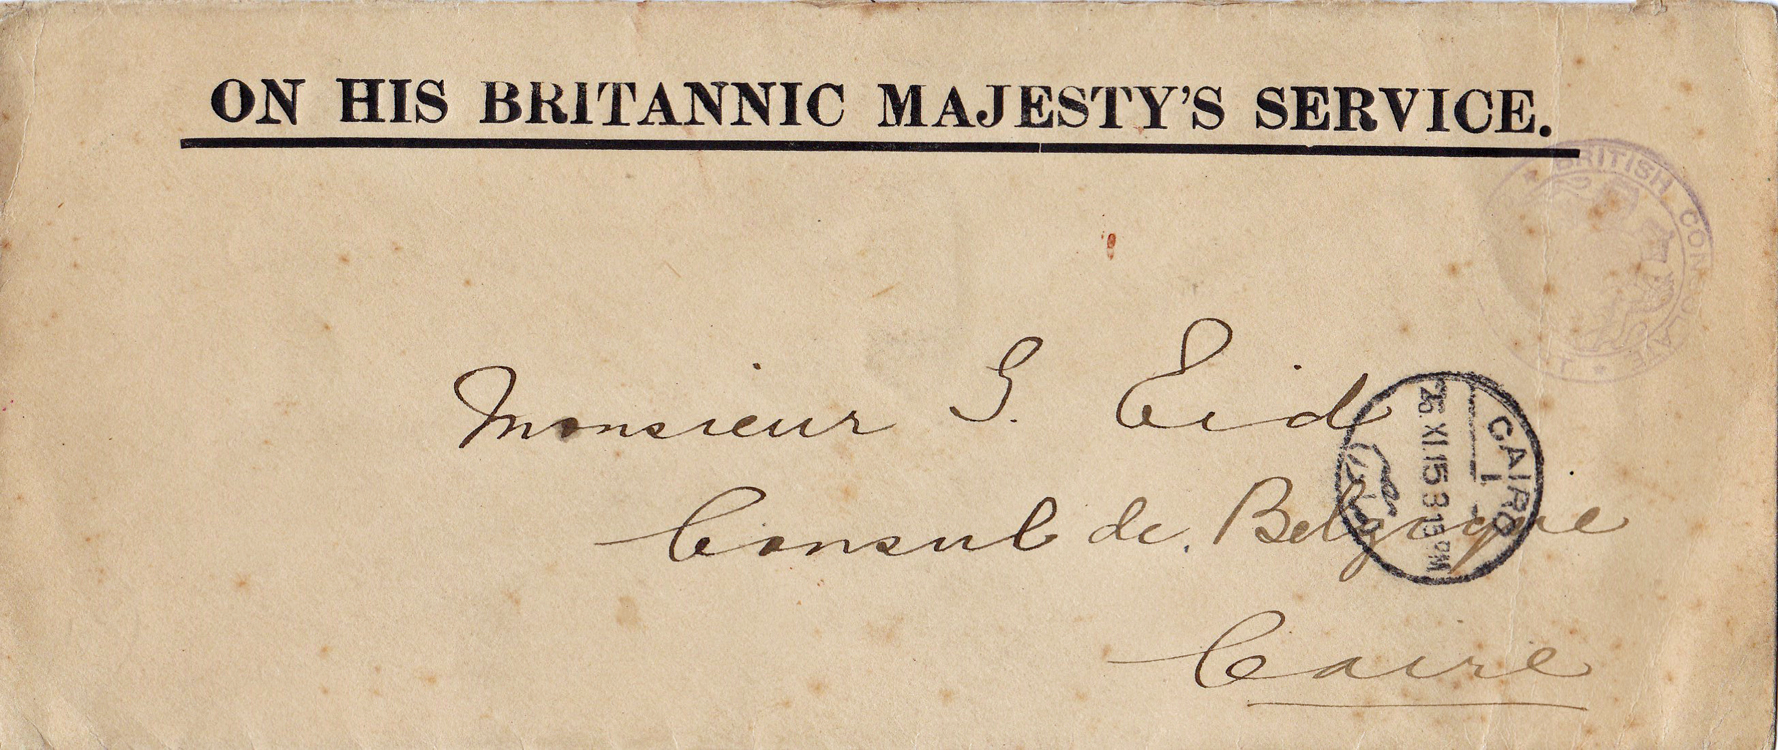 ON HIS BRITANNIC MAJESTY'S SERVICE.
BRITISH CONSULATE
Monsieur G. Eid
Consul de Belgique
Caire
CAIRO
1
25.XI.15 8 15 PM